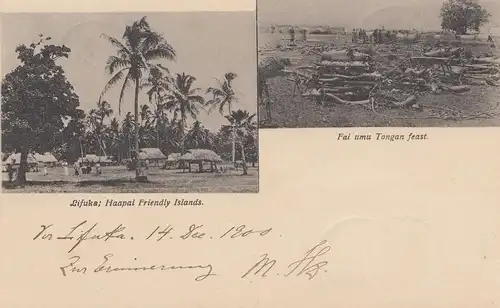 Fai umu Tongan feast.
Lifuka; Haapai Friendly Islands.
Vor Lifuka. 14. Dec. 1900.
Zur Erinnerung M.